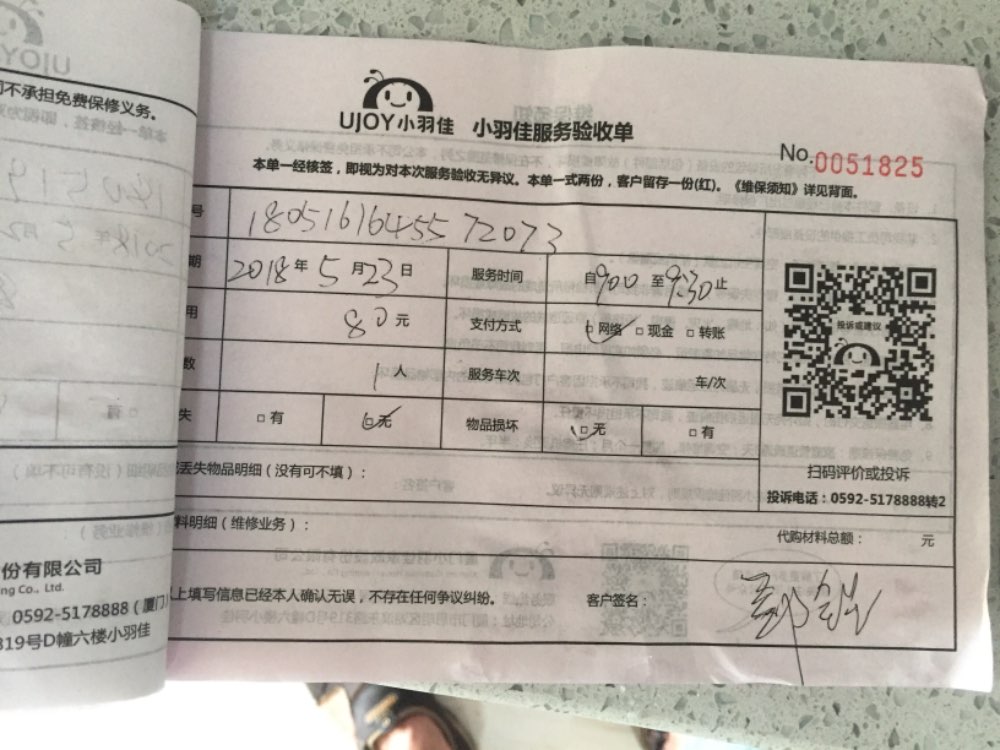 UJOY小羽佳 小羽佳服务验收单
No.0051825
本单一经核签，即视为对本次服务验收无异议。本单一式两份，客户留存一份(红)。《维保须知》详见背面。
号 18051616455 72073
期 2018年5月23日 服务时间 自9:00至9:30止
用 80元 支付方式 □网络 □现金 □转账
数 1人 服务车次 车/次
失 □有 □无 物品损坏 □无 □有
投诉或建议
扫码评价或投诉
投诉电话：0592-5178888转2
丢失物品明细（没有可不填）：
料明细（维修业务）： 代购材料总额： 元
上填写信息已经本人确认无误，不存在任何争议纠纷。 客户签名：
不承担免费保修义务。
份有限公司
ng Co., Ltd.
0592-5178888（厦门）
319号D幢六楼小羽佳